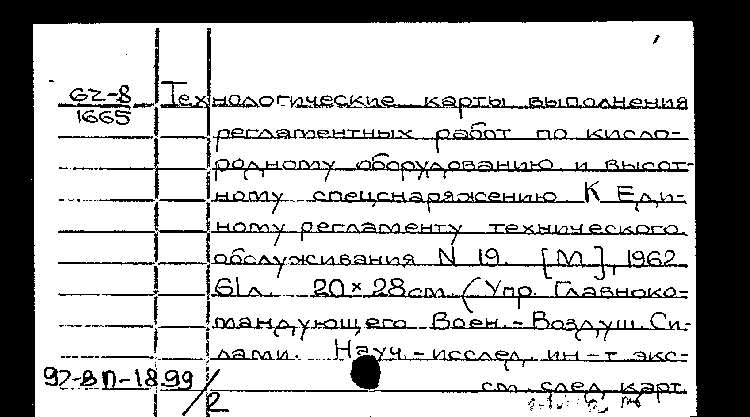 62-8 Технологические карты выполнения
1665
регламентных работ по кисло-
родному оборудованию и высот-
ному спецснаряжению К Еди-
ному регламенту технического
обслуживания N 19. [М], 1962
61л. 20×28см. (Упр. Главноко-
мандующего Воен.-Воздуш. Си-
лами. Науч.-исслед. ин-т экс-
92-8П-1899/2 см. след. карт.